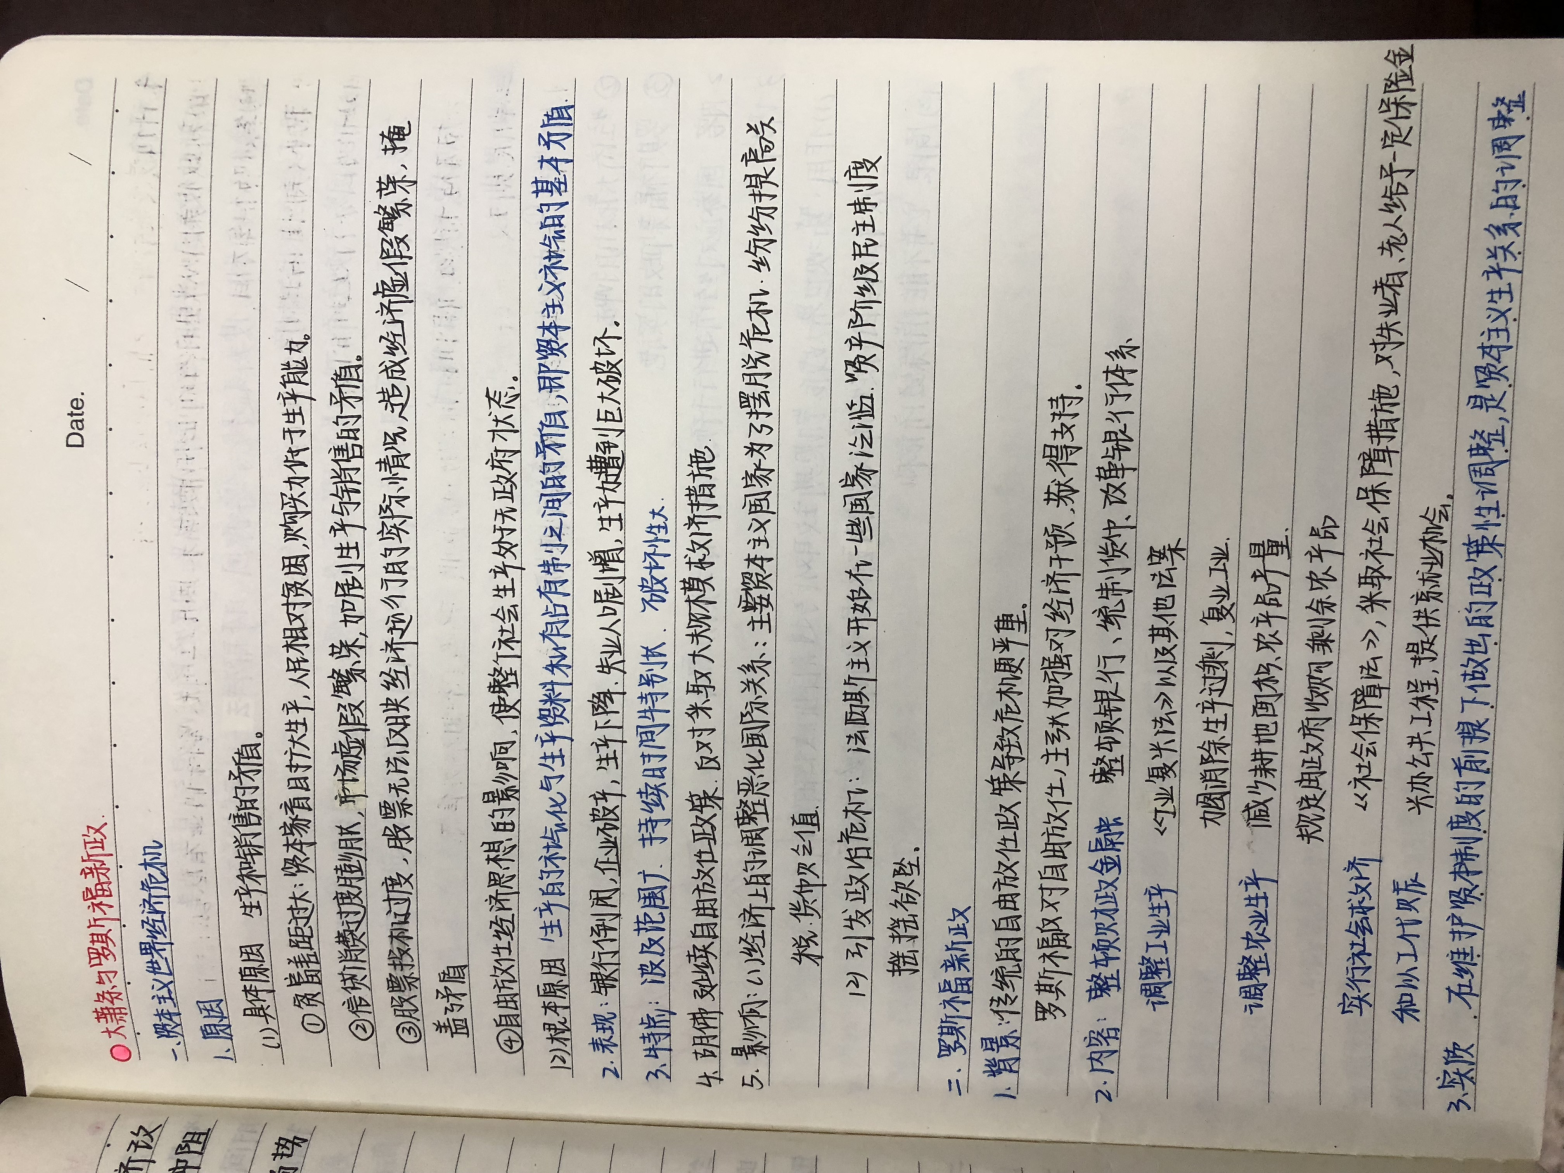 Date. / /
大萧条与罗斯福新政.
一、资本主义世界经济危机
1、原因
(1)具体原因 生产和销售的矛盾。
①贫富差距过大:资本家盲目扩大生产,人民相对贫困,购买力低于生产能力。
②信贷消费过度膨胀,市场虚假繁荣,加剧生产与销售的矛盾。
③股票投机过度,股票无法反映经济运行的实际情况,造成经济虚假繁荣,掩
盖矛盾
④自由放任经济思想的影响,使整个社会生产处于无政府状态.
(2)根本原因 生产的社会化与生产资料私有占有制之间的矛盾,即资本主义社会的基本矛盾.
2.表现:银行倒闭,企业破产,生产下降,失业人口剧增,生产力遭到巨大破坏.
3.特点:波及范围广.持续时间特别长.破坏性大
4.胡佛 延续自由放任政策.反对采取大规模救济措施.
5.影响:(1)经济上的调整恶化国际关系:主要资本主义国家为了摆脱危机.纷纷提高关
税.货币贬值
(2)引发政治危机:法西斯主义开始在一些国家泛滥.资产阶级民主制度
摇摇欲坠.
二.罗斯福新政
1.背景:传统的自由放任政策导致危机更严重.
罗斯福反对自由放任,主张加强对经济干预.获得支持.
2.内容:整顿财政金融 整顿银行、统制货币、改革银行体系
调整工业生产 《工业复兴法》以及其他法案
力图消除生产过剩,复业工业.
调整农业生产 减少耕地面积.农产品产量.
规定由政府收购剩余农产品
实行社会救济 《社会保障法》,采取社会保障措施,对失业者、老人给予一定保险金
和以工代赈 兴办公共工程,提供就业机会.
3.实质.在维护资本制度的前提下做出的政策性调整,是资本主义生产关系的调整
济议
种阻